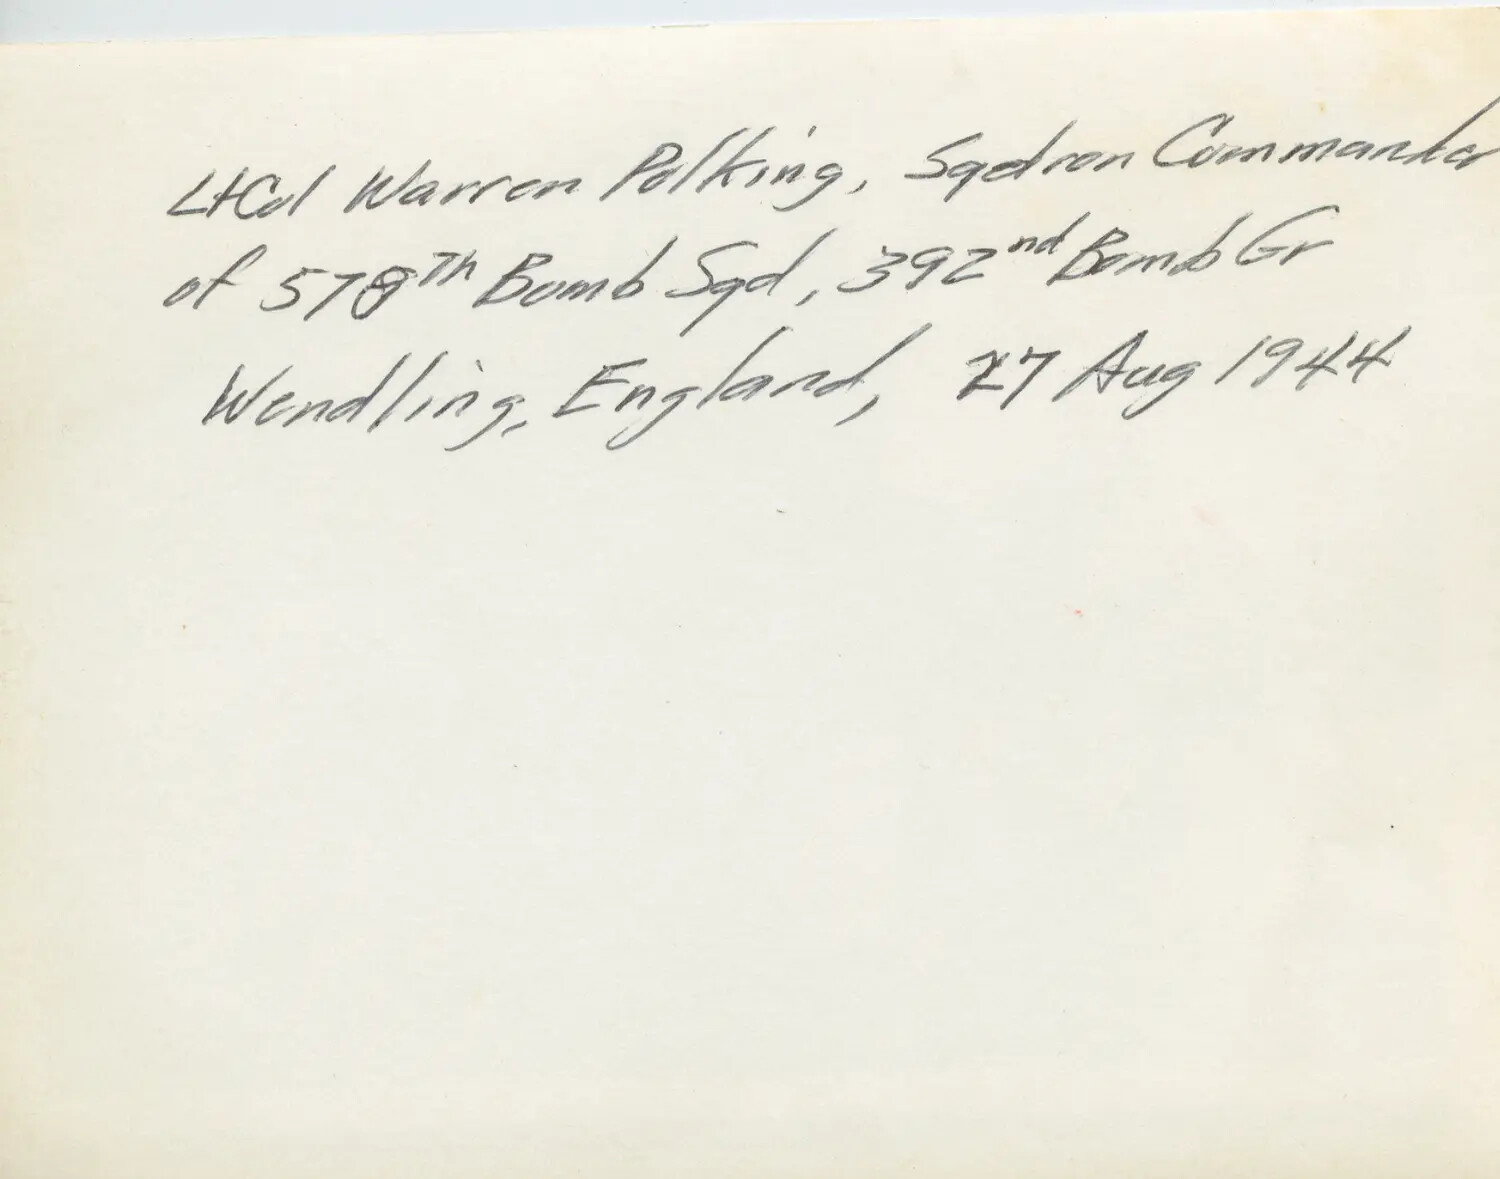 Lt Col Warren Polking, Sqdron Commander
of 578th Bomb Sqd, 392nd Bomb Gr
Wendling, England, 27 Aug 1944